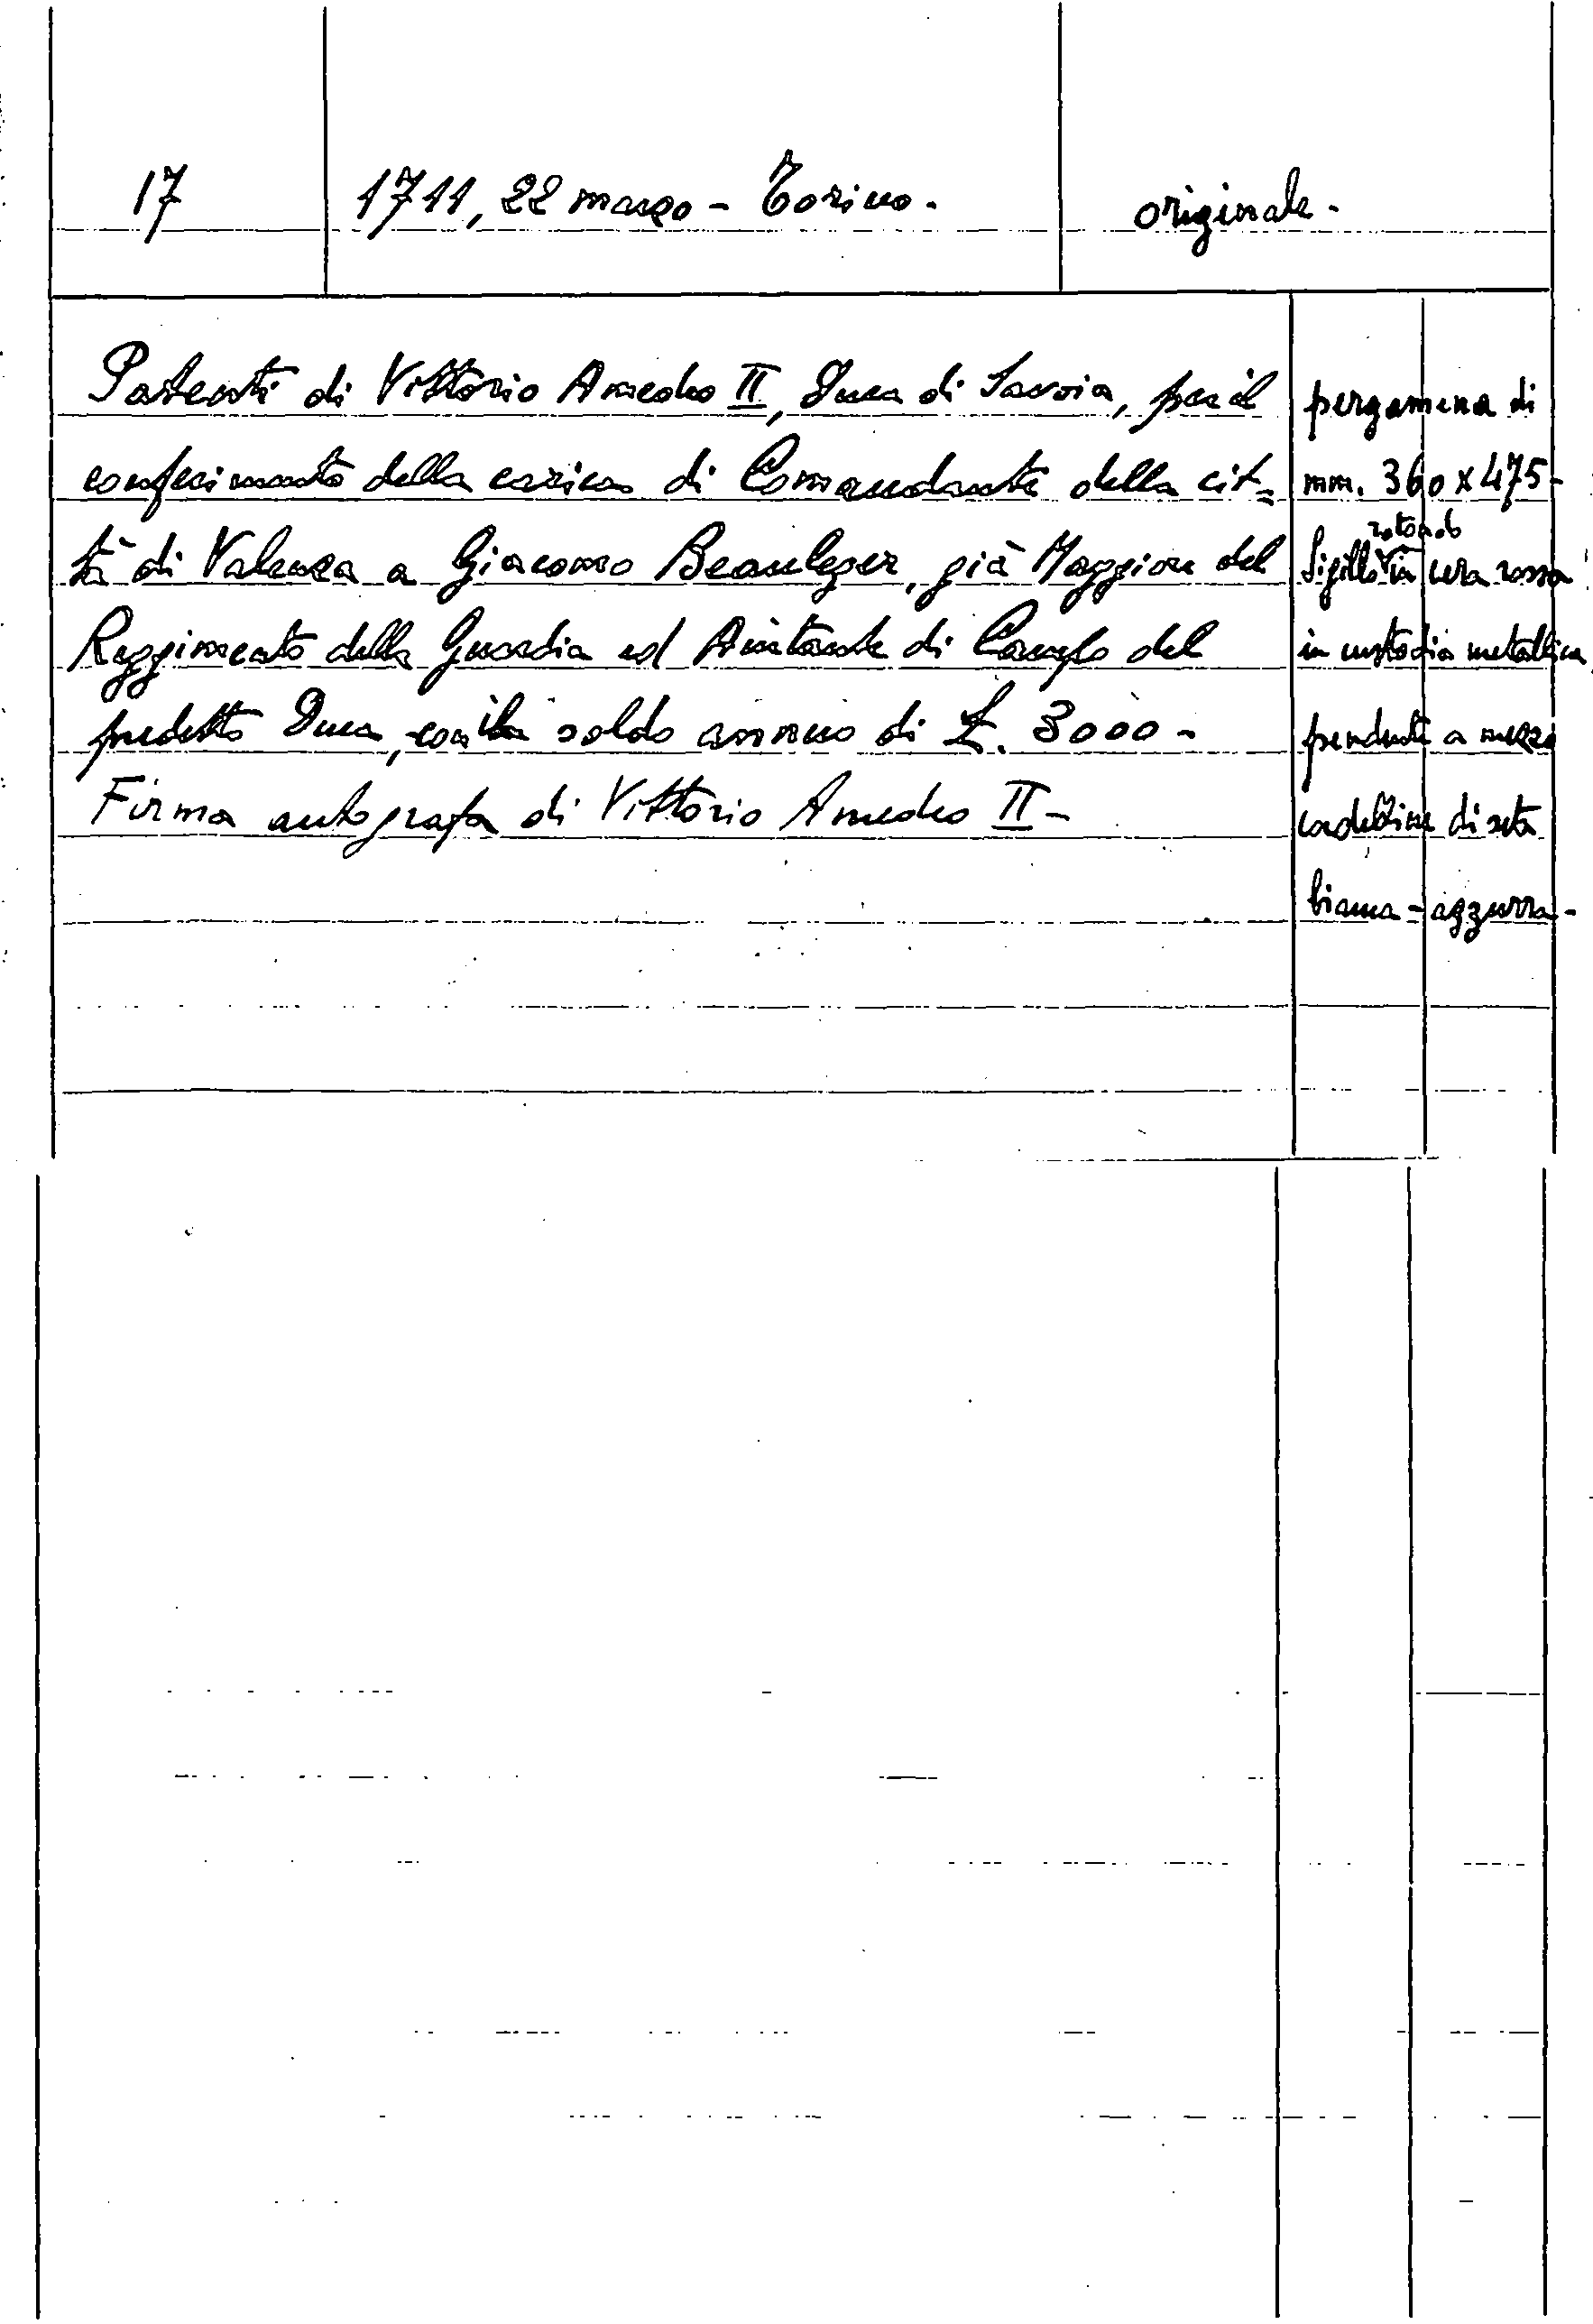 17
1711, 22 marzo - Torino.
originale.
Patenti di Vittorio Amedeo II, Duca di Savoia, per il
conferimento della carica di Comandante della cit=
tà di Valenza a Giacomo Beauleger, già Maggiore del
Reggimento della Guardia ed Aiutante di Campo del
predetto Duca, con il soldo annuo di £. 3000 -
Firma autografa di Vittorio Amedeo II -
pergamena di
mm. 360 x 475 -
Sigillo rotondo in cera rossa
in custodia metallica
pendente a mezzo
cordellina di seta
bianca - azzurra -